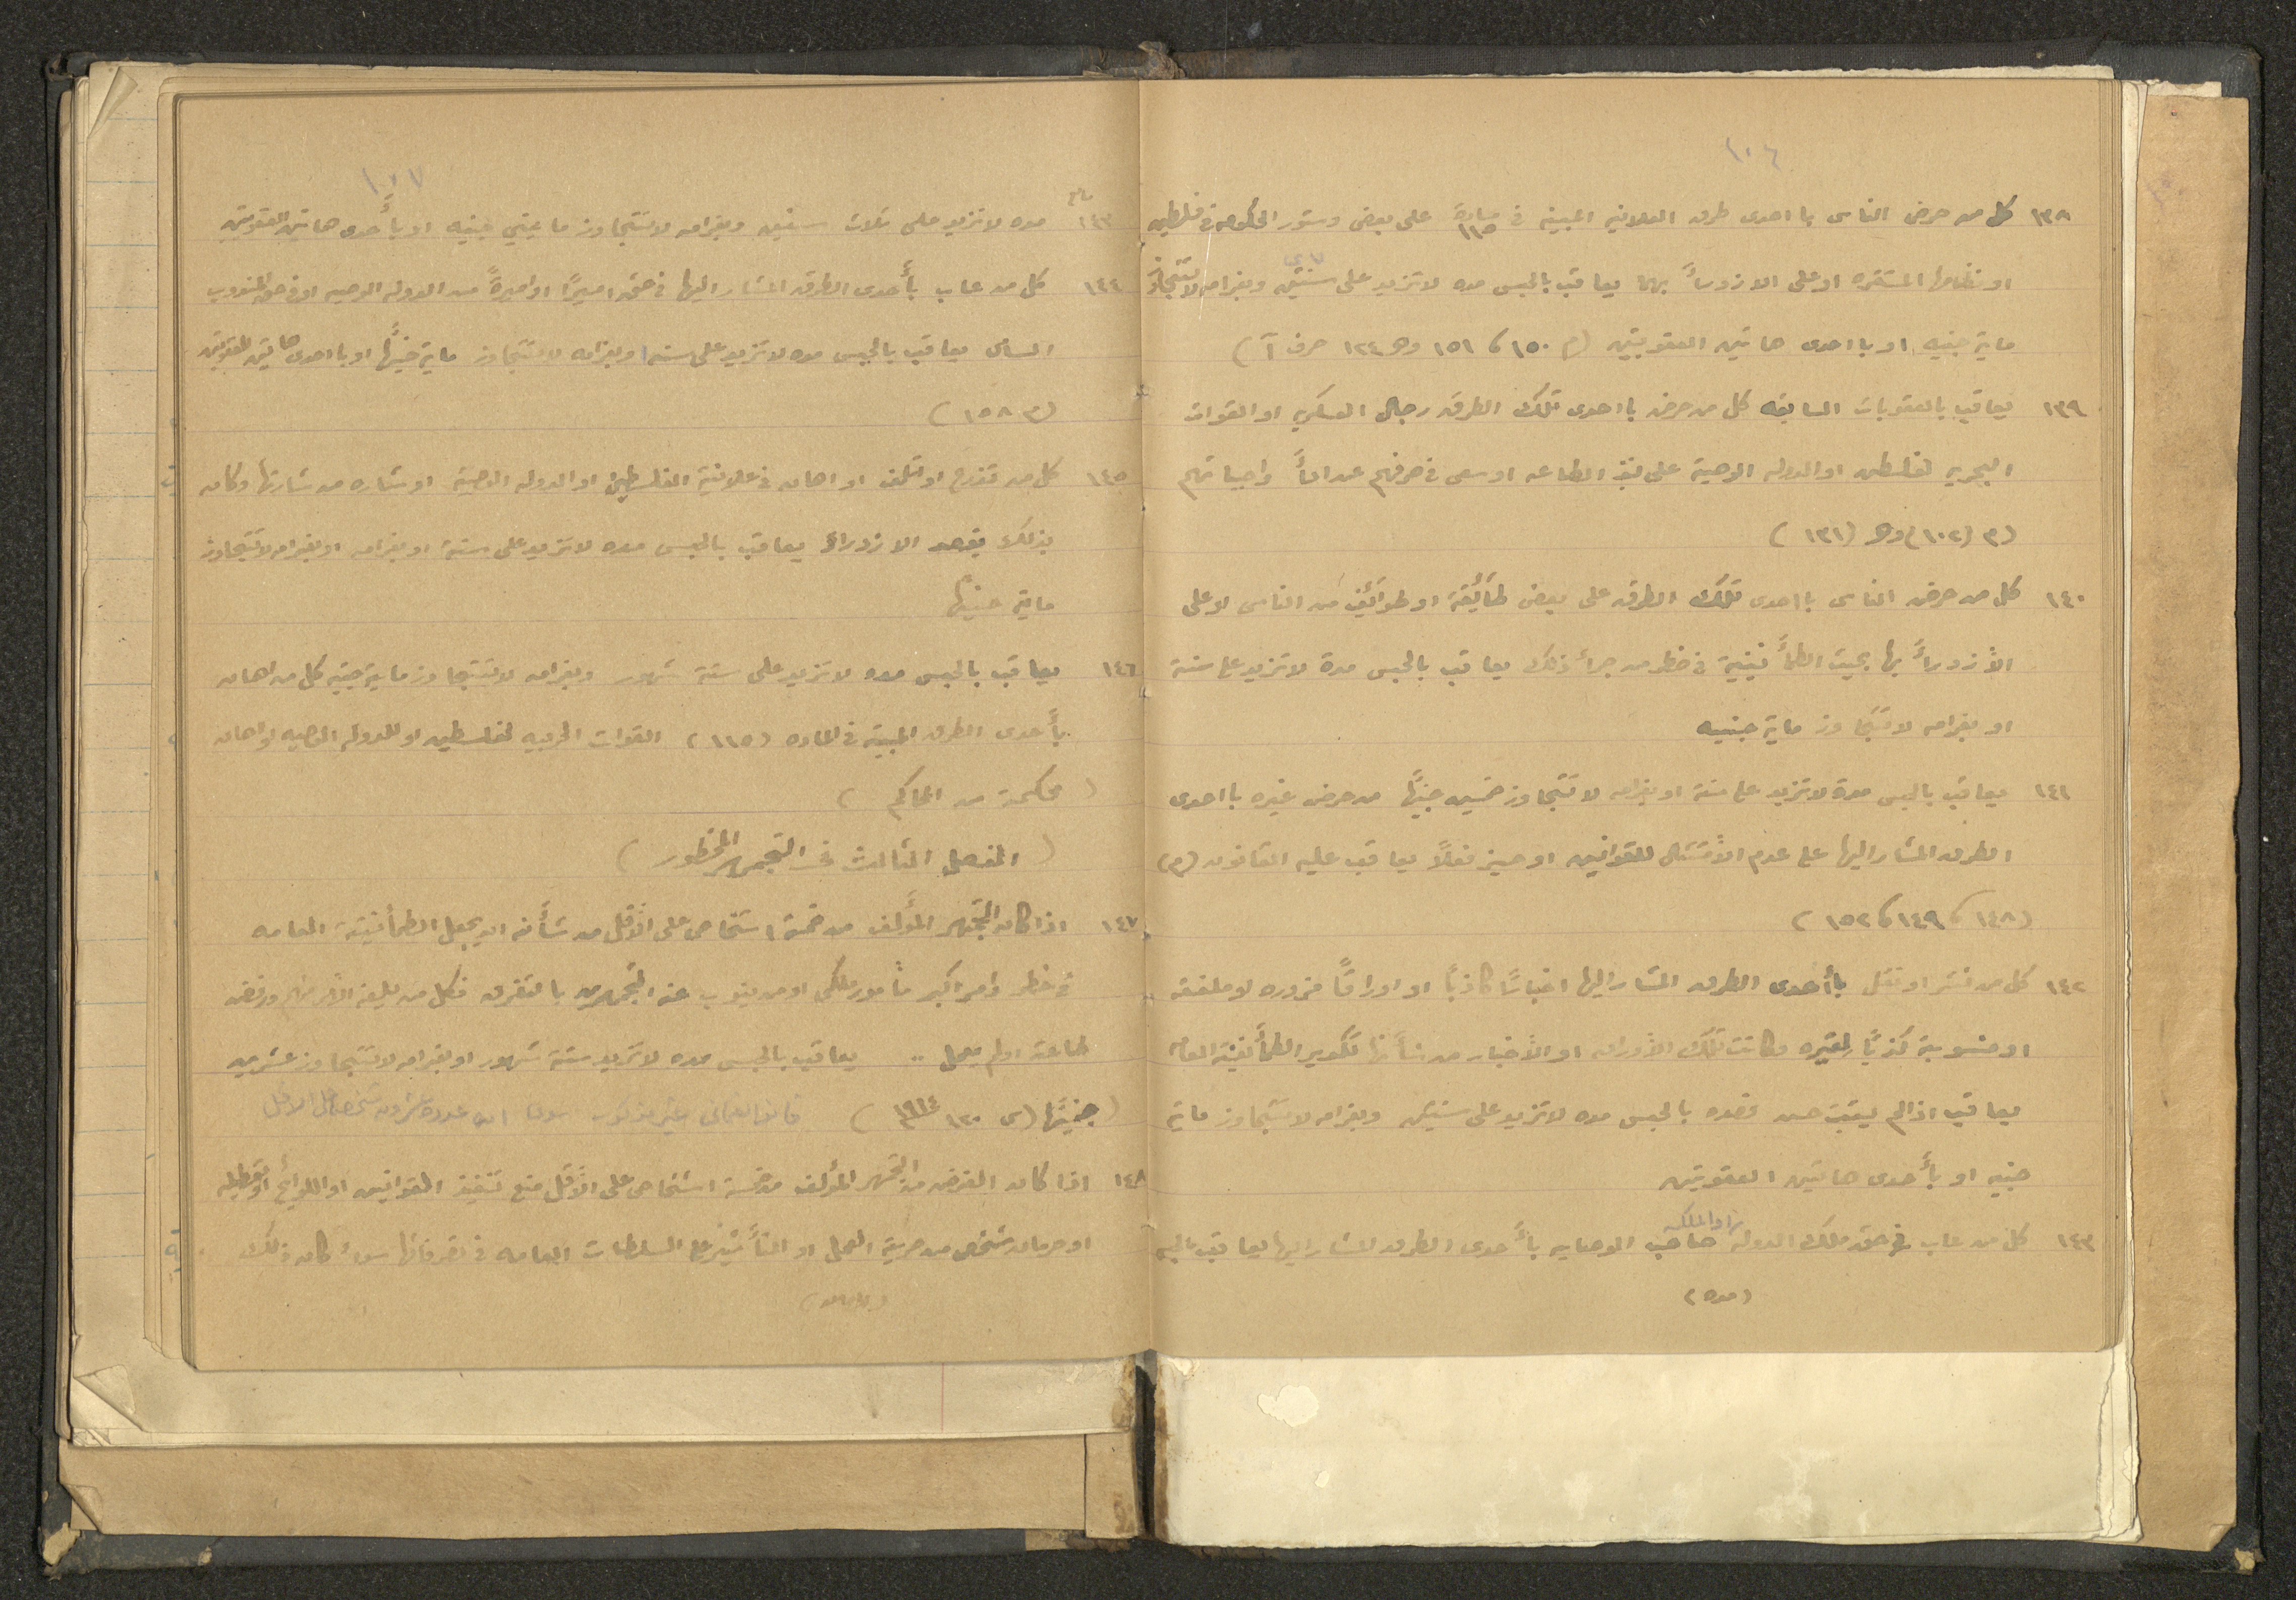 ١٠٦
١٣٨ كل من حرض الناس بااحدى طرق العلانيه المبينه في مادة ١١٥ على بغض دستور الحكومه في فلسطين
او نظامها المستقره او على الازدراءً بهما يعاقب بالحبس مده لا تزيد على سنتين وبغرامه لا تتجاوز
ماية جنيه او بااحدى هاتين العقوبتين (م ١٥٠ ، ١٥١ وهـ ١٢٤ حرف آ)
١٣٩ يعاقب بالعقوبات السابقه كل من حرض بااحدى تلك الطرق رجال العسكر او القوات
البحريه لفلسطين او الدوله الوصية على نبذ الطاعه او سعى في صرفهم عن اداءً واجباتهم
(م (١٠٢) وهـ (١٣١)
١٤٠ كل من حرض الناس بااحدى تلك الطرق على بغض طائفة او طوائف من الناس او على
الأزدراءً بها بحيث الطمأنينية في خطر من جراء ذلك يعاقب بالحبس مدة لا تزيد على سنة
او بغرامه لا تتجاوز ماية جنيه
١٤١ يعاقب بالحبس مدة لا تزيد على سنة او بغرامه لا تتجاوز خمسين جنيهًا من حرض غيره بااحدى
الطرق المشار اليها على عدم الأمتثال للقوانين او حبذ فعلاً يعاقب عليه القانون (م)
(١٤٨ ، ١٤٩ ، ١٥٢)
١٤٢ كل من نشر او نقل بأحدى الطرق المشار اليها اخبارًا كاذبًا او اوراقًا مزوره او ملفقه
او منسوبة كذبًا لغيره وكانت تلك الأوراق او الأخبار من شأنها تكدير الطمأنينة العامه
يعاقب اذا لم يثبت حسن قصده بالحبس مده لا تزيد على سنتين وبغرامه لا تتجاوز ماية
جنيه او بأحدى هاتين العقوبتين
١٤٣ كل من عاب في حق ملك الدوله او الملكه صاحب الوصايه بأحدى الطرق المشار اليها يعاقب بالحبس
(مده)
١٠٧
١٤٣ مده لا تزيد على ثلاث سنين وبغرامه لا تتجاوز مايتي جنيه او بأحدى هاتين العقوبتين
١٤٤ كل من عاب بأحدى الطرق المشار اليها في حق اميرًا او اميرةً من الدوله الوصيه او في حق المندوب
السامي يعاقب بالحبس مده لا تزيد على سنه او بغرامه لا تتجاوز ماية جنيهًا او بااحدى هاتين العقوبتين
(م ١٥٨)
١٤٥ كل من او اتلف او اهان في علانية العلم الفلسطيني او الدوله الوصية او شاره من شاراتها وكان
بذلك يقصد الازدراء يعاقب بالحبس مده لا تزيد على سنة او بغرامه او بغرامه لا تتجاوز
ماية جنيهًا
١٤٦ يعاقب بالحبس مده لا تزيد على ستة شهور وبغرامه لا تتجاوز ماية جنيه كل من اهان
بأحدى الطرق المبينة في الماده (١١٥) القوات الحربيه لفلسطين او للدوله الوصيه او اهان
(محكمة من المحاكم)
(الفصل الثالث في التجمهر المحظور)
١٤٧ اذا كان التجمهر المؤلف من خمسة اشخاص على الأقل من شأنه ان يجعل الطمأنينة العامه
في خطر وامر اكبر مأمور ملكي او من ينوب عنه المتجمهرين بالتفرق فكل من بلغه الأمر منهم ورفض
طاعته او لم يعمل .. يعاقب بالحبس مده لا تزيد ستة شهور او بغرامه لا تتجاوز عشرين
(جنيهًا (س ١٢٠ ١٩١٤م) قانون العثماني غير مذكور سوى ان عدده عشرون شخص على الاقل
١٤٨ اذا كان الغرض من التجمهر المؤلف من خمسة اشخاص على الأقل منع تنفيذ القوانين او اللوائح او تعطيله
او حرمان شخص من حرية العمل او التأثير على السلطات العامه في تصرفاتها سواء كان ذلك